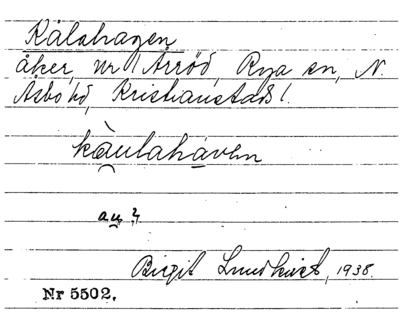 Kålahagen
åker, nr 1 Arröd, Rya sn, N.
Åsbo hd, Kristianstads l.
kàulahàven
au?
Birgit Lundkvist, 1938.
Nr 5502.